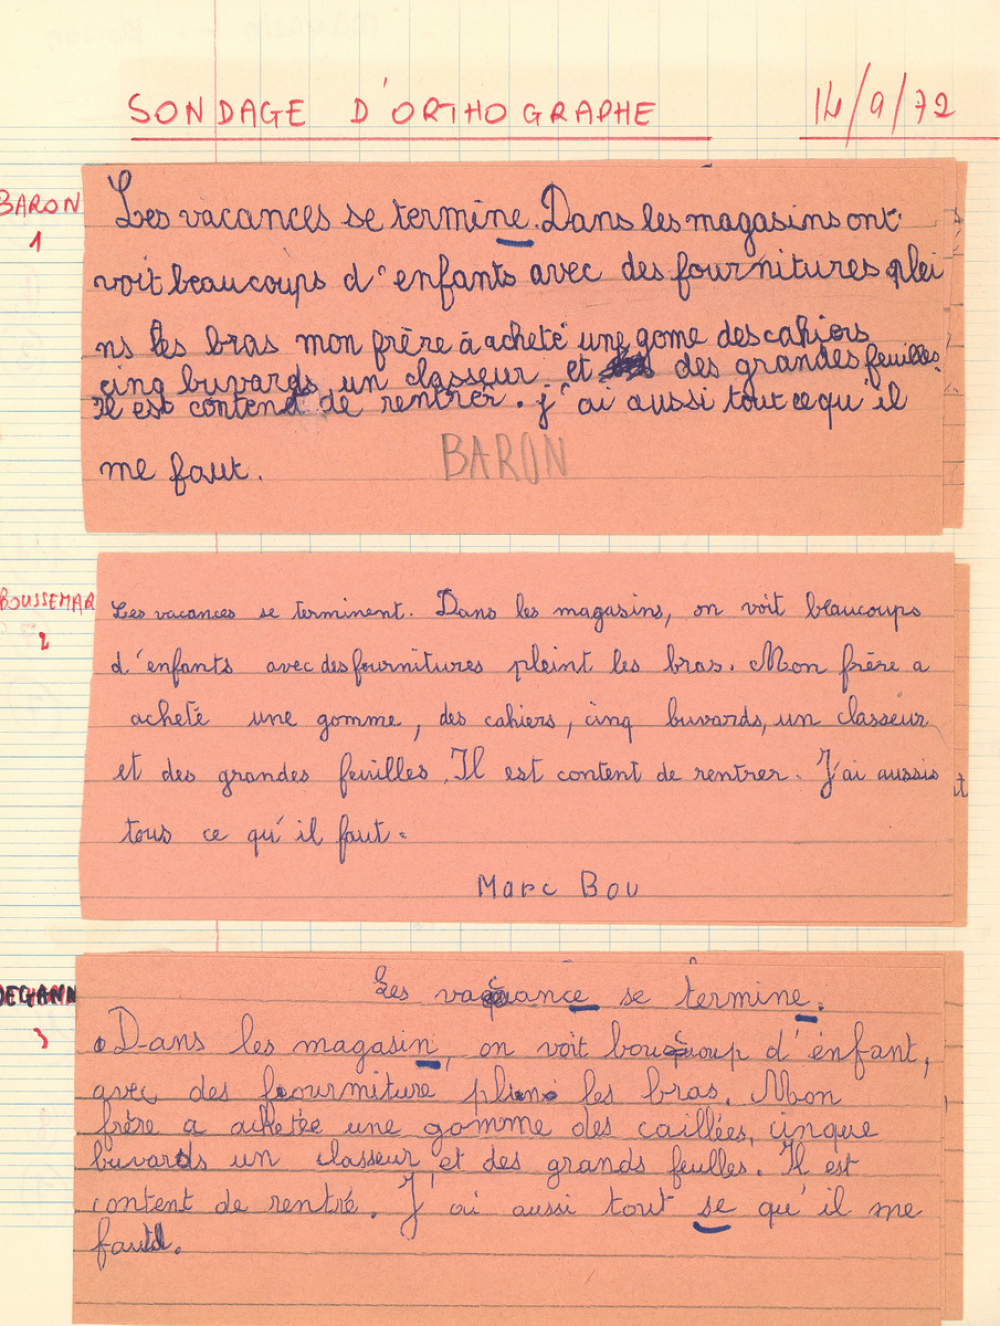 SONDAGE D'ORTHOGRAPHE 14/9/72
BARON
1
Les vacances se termine. Dans les magasins ont
voit beaucoups d'enfants avec des fournitures plei
ns les bras mon frère à acheté une gome des cahiers
cinq buvards un classeur et des grandes feuilles.
Il est contend de rentrer. j'ai aussi tout ce qu'il
me faut.
BARON
BOUSSEMAR
2
Les vacances se terminent. Dans les magasins, on voit beaucoups
d'enfants avec des fournitures pleint les bras. Mon frère a
acheté une gomme, des cahiers, cinq buvards, un classeur
et des grandes feuilles. Il est content de rentrer. J'ai aussis
tous ce qu'il faut.
Marc Bou
3
Les se termine.
Dans les magasin, on voit d'enfant,
avec des les bras. Mon
frère a achetée une gomme des caillées, cinque
buvards un classeur et des grands feulles. Il est
content de rentré. J'ai aussi tout se qu'il me